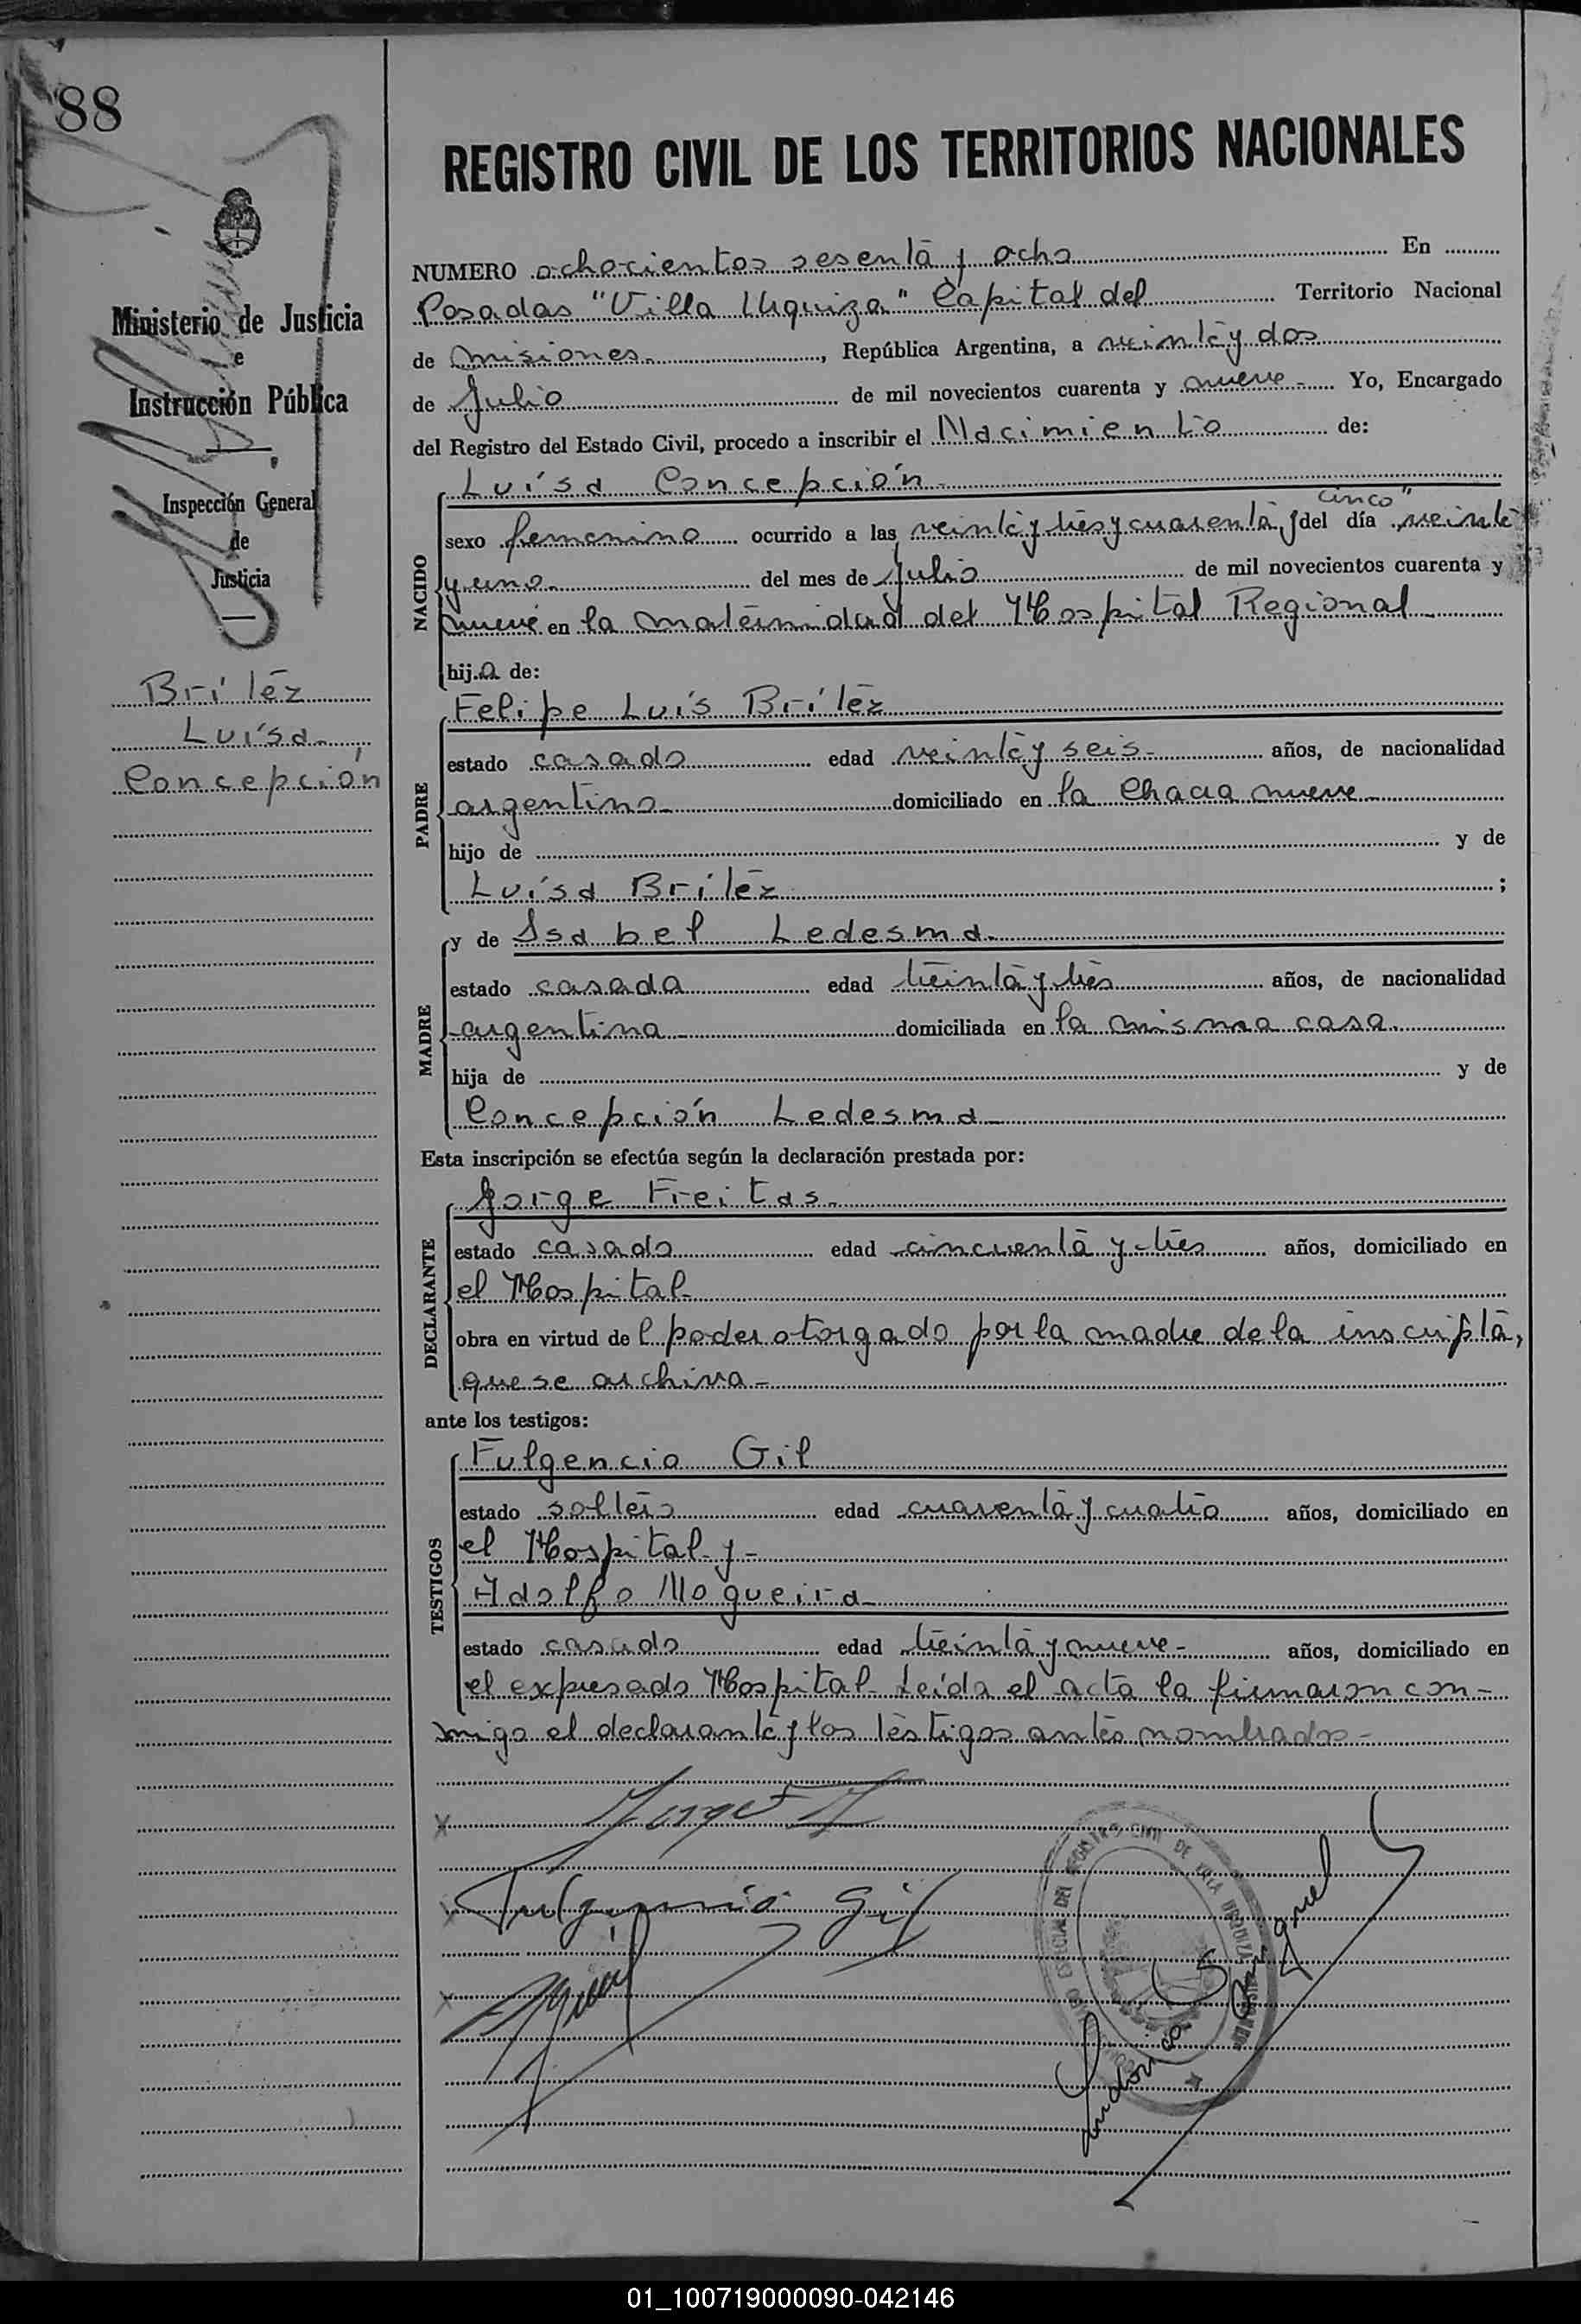 88
REGISTRO CIVIL DE LOS TERRITORIOS NACIONALES
Ministerio de Justicia
e
Instrucción Pública
Inspección General
de
Justicia
Brítez
Luísa
Concepción
NUMERO ochocientos sesenta y ocho En
Posadas "Villa Urquiza" Capital del Territorio Nacional
de misiones, República Argentina, a veinte y dos
de Julio de mil novecientos cuarenta y nueve Yo, Encargado
del Registro del Estado Civil, procedo a inscribir el Nacimiento de:
Luísa Concepción
cinco"
NACIDO
sexo femenino ocurrido a las veinte y tres y cuarenta y del día veinte
y uno del mes de Julio de mil novecientos cuarenta y
nueve en la maternidad del Hospital Regional
hija de:
Felipe Luís Brítez
PADRE
estado casado edad veinte y seis años, de nacionalidad
argentino domiciliado en la Chacra nueve
hijo de y de
Luísa Brítez ;
MADRE
y de Isabel Ledesma
estado casada edad treinta y tres años, de nacionalidad
argentina domiciliada en la misma casa
hija de y de
Concepción Ledesma
Esta inscripción se efectúa según la declaración prestada por:
Jorge Freitas
DECLARANTE
estado casado edad cincuenta y tres años, domiciliado en
el Hospital
obra en virtud del poder otorgado por la madre de la inscripta,
que se archiva
ante los testigos:
Fulgencio Gil
TESTIGOS
estado soltero edad cuarenta y cuatro años, domiciliado en
el Hospital y
Adolfo Nogueira
estado casado edad treinta y nueve años, domiciliado en
el expresado Hospital Leída el acta la firmaron con-
migo el declarante y los testigos antes nombrados
Jorge
Fulgencio Gil
REGISTRO CIVIL DE VILLA URQUIZA
01_100719000090-042146